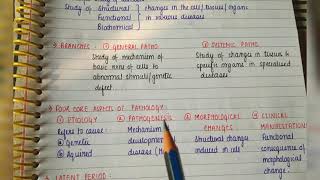 Study of Structural changes in the cell/tissue/organs
Functional in various diseases
Biochemical
→ BRANCHES: ① GENERAL PATHO ② SYSTEMIC PATHO
Study of mechanism of Study of changes in tissues &
basic rxns of cells to specific organs in specialised
abnormal stimuli/genetic diseases
defect....
→ FOUR CORE ASPECTS OF PATHOLOGY:
① ETIOLOGY ② PATHOGENESIS ③ MORPHOLOGICAL ④ CLINICAL
Refers to cause: Mechanism CHANGES MANIFESTATIONS
ⓐ Genetic development Structural changes Functional
ⓑ Aquired disease induced in cells consequence of
morphological
change.
→ LATENT PERIOD: